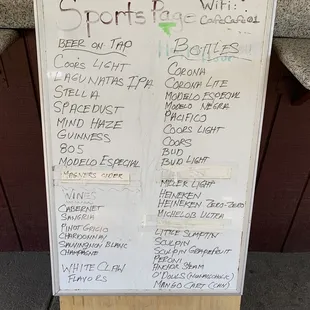 Sports Page
WiFi:
CafeCafe01
BEER ON TAP
COORS LIGHT
LAGUNATAS IPA
STELLA
SPACEDUST
MIND HAZE
GUINNESS
805
MODELO ESPECIAL
MAGNERS CIDER
WINES
CABERNET
SANGRIA
PINOT GRIGIO
CHARDONNAY
SAUVINGNON BLANC
CHAMPAGNE
WHITE CLAW
FLAVORS
BOTTLES
CORONA
CORONA LITE
MODELO ESPECIAL
MODELO NEGRA
PACIFICO
COORS LIGHT
COORS
BUD
BUD LIGHT
MILLER LIGHT
HEINEKEN
HEINEKEN ZERO-ZERO
MICHELOB ULTRA
LITTLE SUMPTIN
SCULPIN
SCULPIN GRAPEFRUIT
PERONI
ANCHOR STEAM
O'DOULS (NONALCOHOLIC)
MANGO CART (CAN)